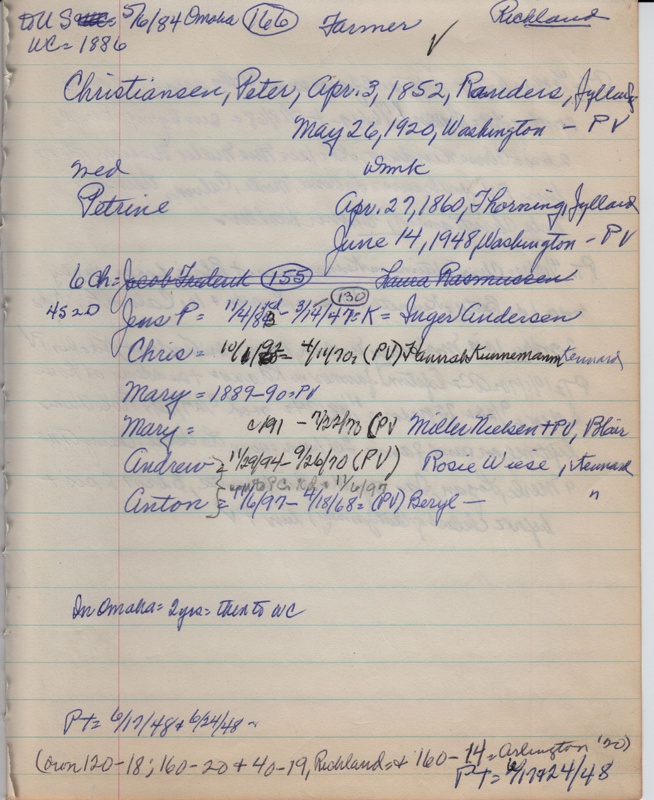 to US 5/6/84 Omaha (166) Farmer Richland
WC = 1886 ✓
Christiansen, Peter, Apr. 3, 1852, Randers, Jylland
May 26, 1920, Washington - PV
wed wmk
Petrine Apr. 27, 1860, Thorning, Jylland
June 14, 1948, Washington - PV
6 ch = Jacob Frederik (155) Laura Rasmussen
4520 Jens P = 11/4/83 - 3/15/47 = K = Inger Andersen (130)
Chris = 10/1/92 = 4/11/70 (PV) Hannah Kunnemann Kennard
Mary = 1889-90 = PV
Mary = c/91 - 7/22/73 (PV Miller Nielsen + PV, Blair
Andrew = 11/29/94 - 9/26/70 (PV) Rosie Wiese, Kennard
= 11/6/97
Anton = 11/6/97 - 4/18/68 = (PV) Beryl - "
In Omaha = 2 yrs = then to WC
PT = 6/17/48 + 6/24/48 -
(own 120-18; 160-20 + 40-19, Richland = + 160-14 = Arlington '20)
PT = 6/17+24/48